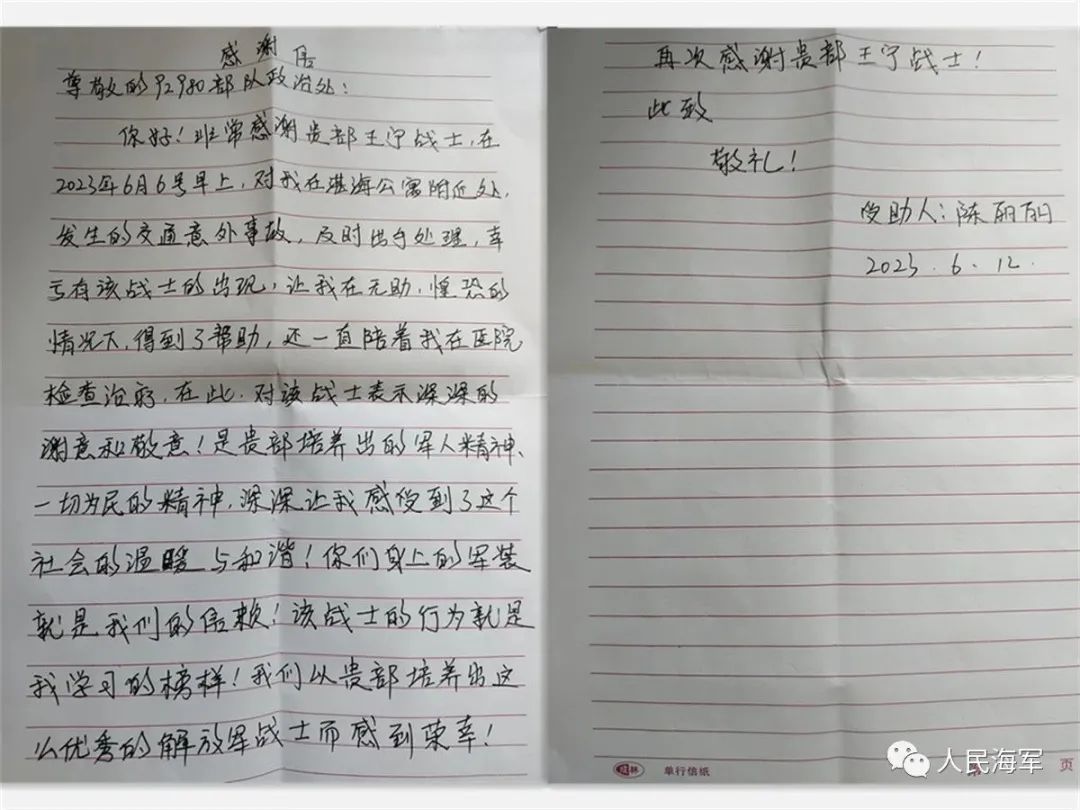 感谢信
尊敬的92980部队政治处：
你好！非常感谢贵部王宁战士，在
2023年6月6号早上，对我在湛海公寓附近处，
发生的交通意外事故，及时出手处理，幸
亏有该战士的出现，让我在无助，惶恐的
情况下，得到了帮助，还一直陪着我在医院
检查治疗，在此，对该战士表示深深的
谢意和敬意！是贵部培养出的军人精神、
一切为民的精神，深深让我感受到了这个
社会的温暖与和谐！你们身上的军装
就是我们的信赖！该战士的行为就是
我学习的榜样！我们以贵部培养出这
么优秀的解放军战士而感到荣幸！
再次感谢贵部王宁战士！
此致
敬礼！
受助人：陈丽丽
2023.6.12.
单行信纸
页
人民海军